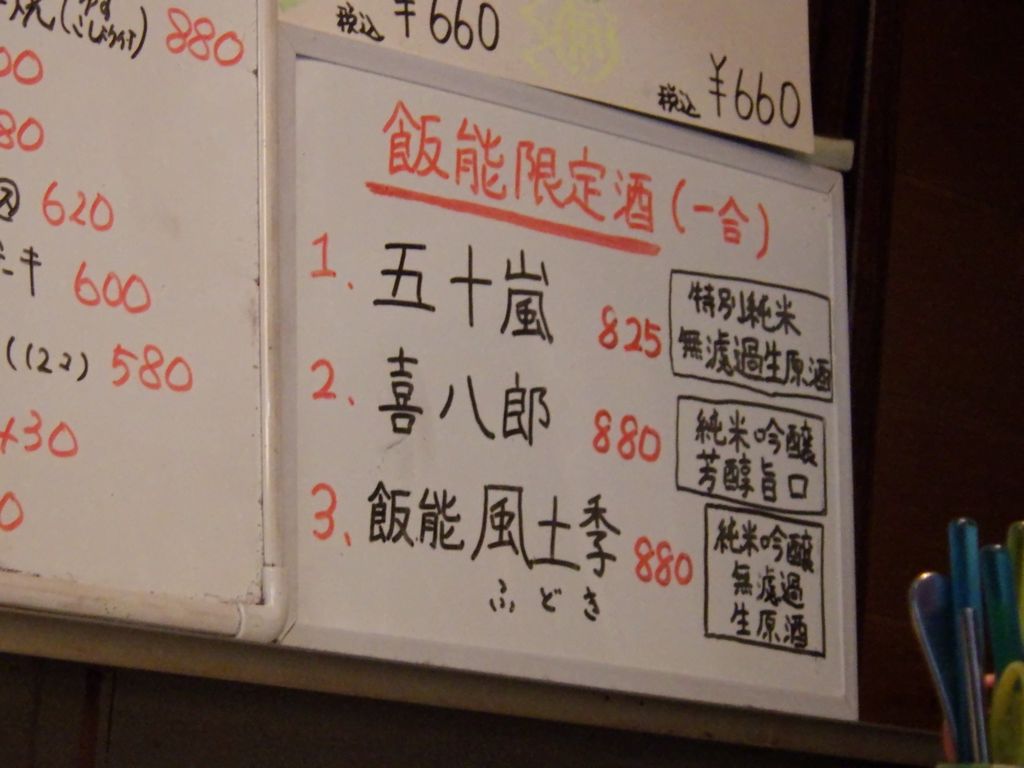 焼(ゆずこしょう付) 880
00
80
620
600
580
30
0
税込 ¥660
税込 ¥660
飯能限定酒(一合)
1、五十嵐 825
特別純米
無濾過生原酒
2、喜八郎 880
純米吟醸
芳醇旨口
3、飯能風土季 880
ふどき
純米吟醸
無濾過
生原酒